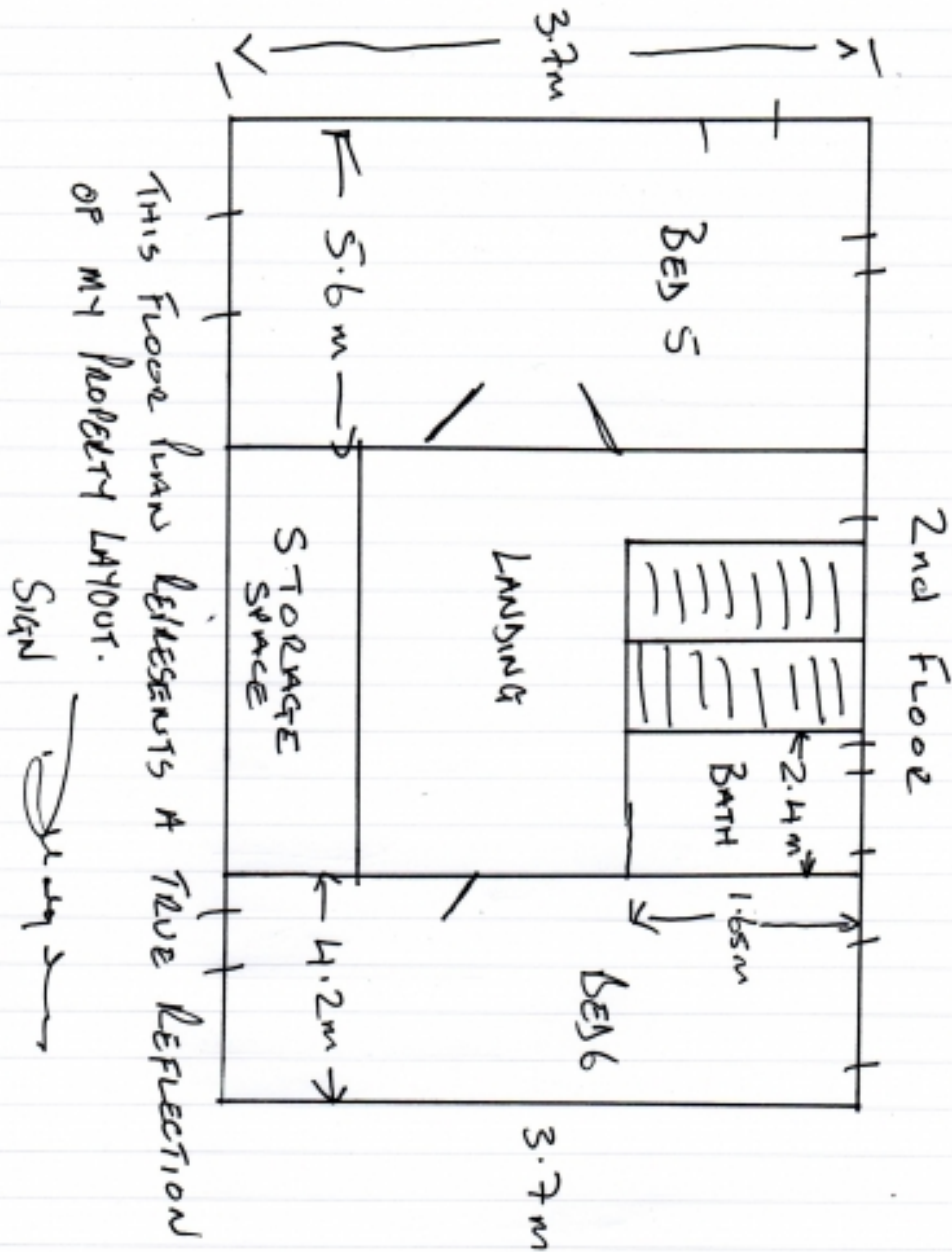 2nd FLOOR
3.7m
BED 5
5.6m
2.4m
BATH
1.65m
LANDING
STORAGE
SPACE
BED 6
4.2m
3.7m
THIS FLOOR PLAN REPRESENTS A TRUE REFLECTION
OF MY PROPERTY LAYOUT.
SIGN